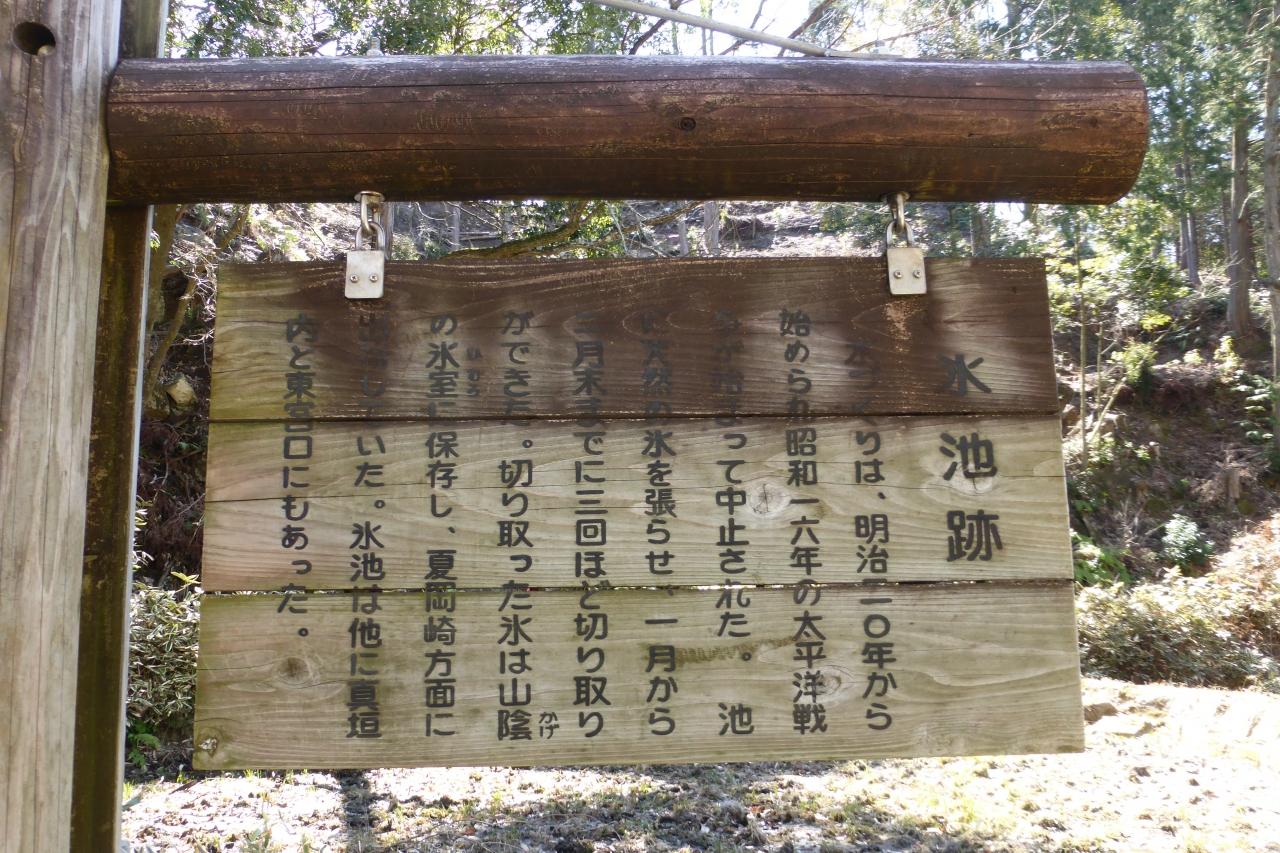 氷池跡
氷づくりは、明治二〇年から
始められ昭和一六年の太平洋戦
争が始まって中止された。　池
に天然の氷を張らせ、一月から
二月末までに三回ほど切り取り
ができた。切り取った氷は山陰
かげ
の氷室に保存し、夏岡崎方面に
ひむろ
出荷していた。氷池は他に真垣
内と東宮口にもあった。